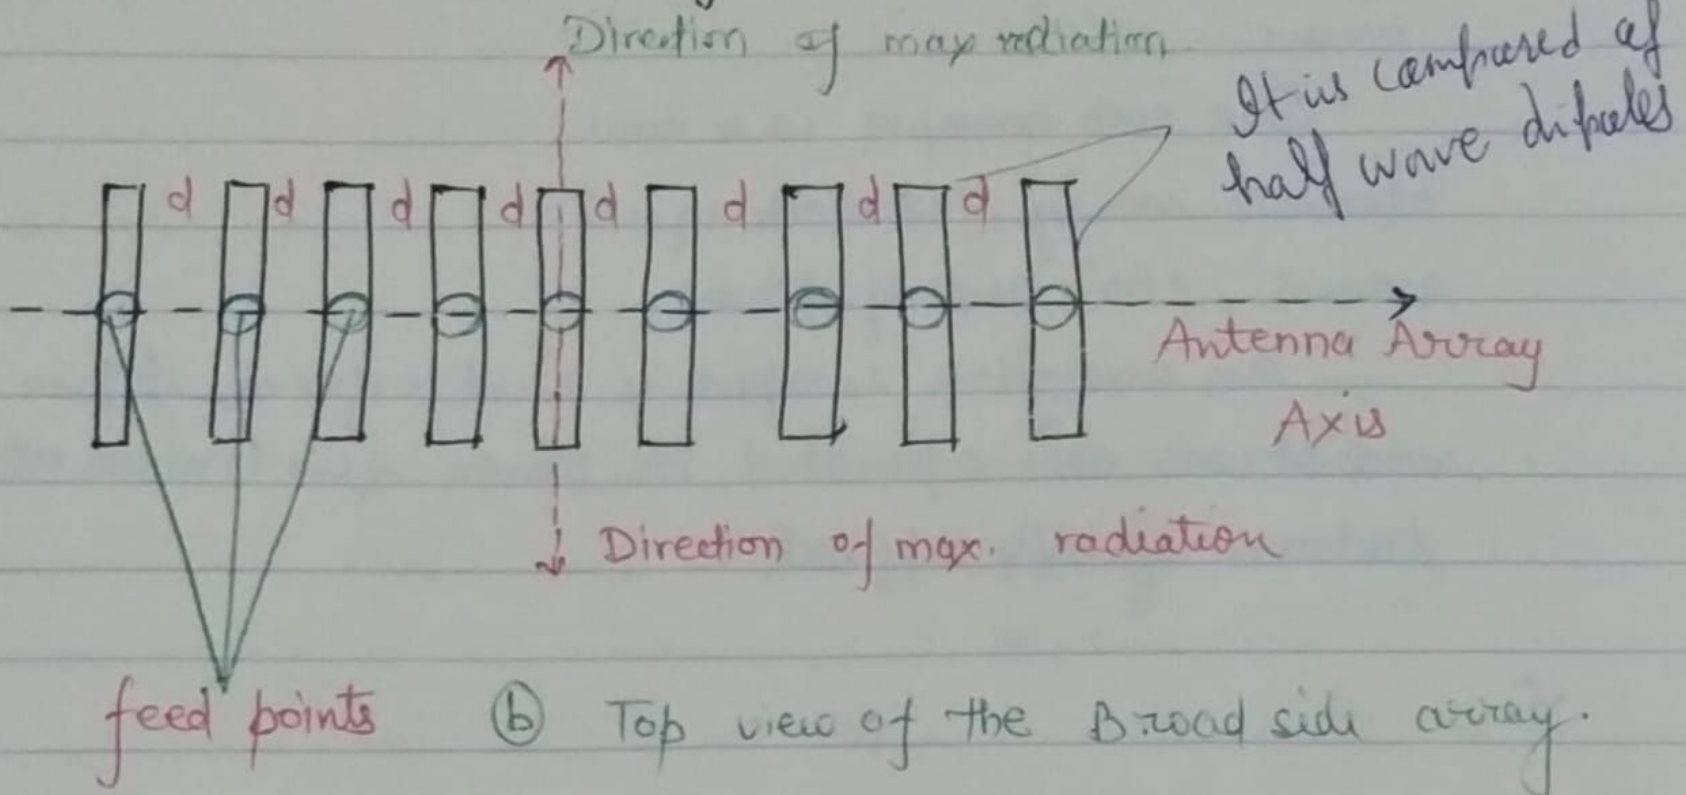 Direction of max radiation
It is compared of
half wave dipoles
d d d d d d d d
Antenna Array
Axis
Direction of max. radiation
feed points
(b) Top view of the Broad side array.